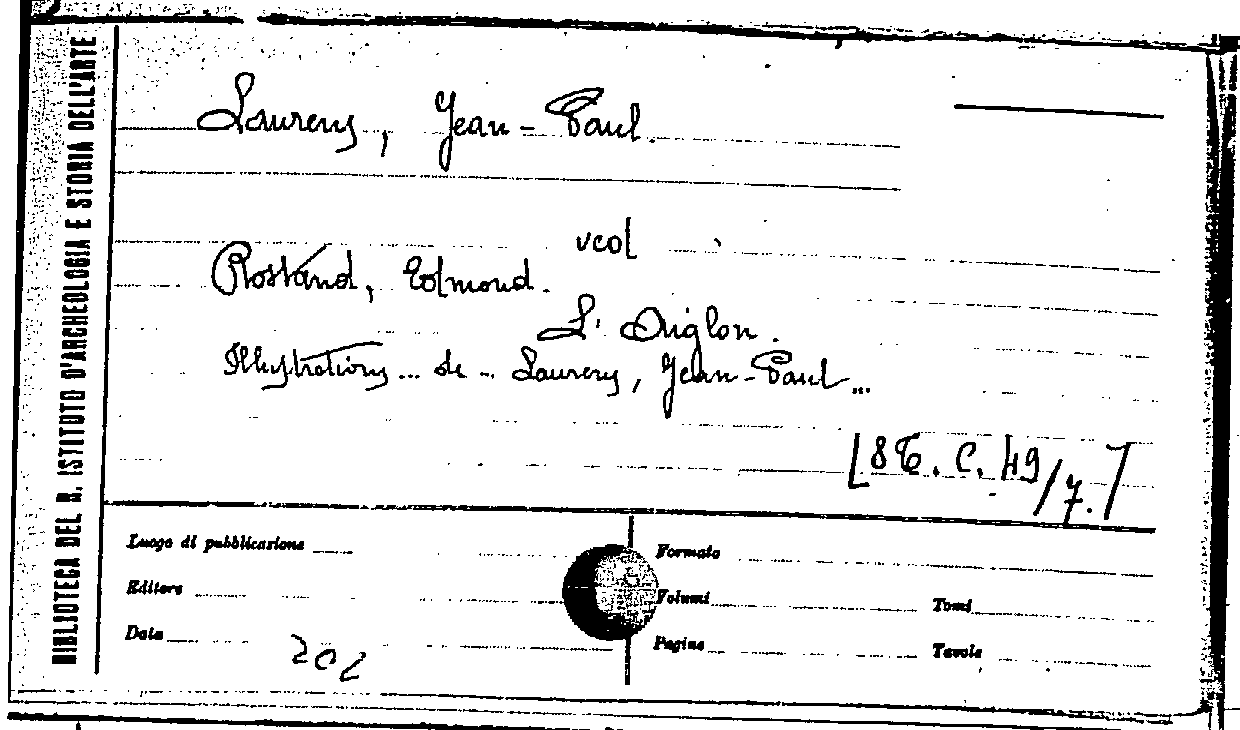 BIBLIOTECA DEL R. ISTITUTO D'ARCHEOLOGIA E STORIA DELL'ARTE
Laurens, Jean-Paul.
vedi
Rostand, Edmond.
L'Aiglon.
Illustrations... de... Laurens, Jean-Paul...
[8E. C. 49/7.]
Luogo di pubblicazione
Formato
Editore
Volumi
Tomi
Data
Pagine
Tavole